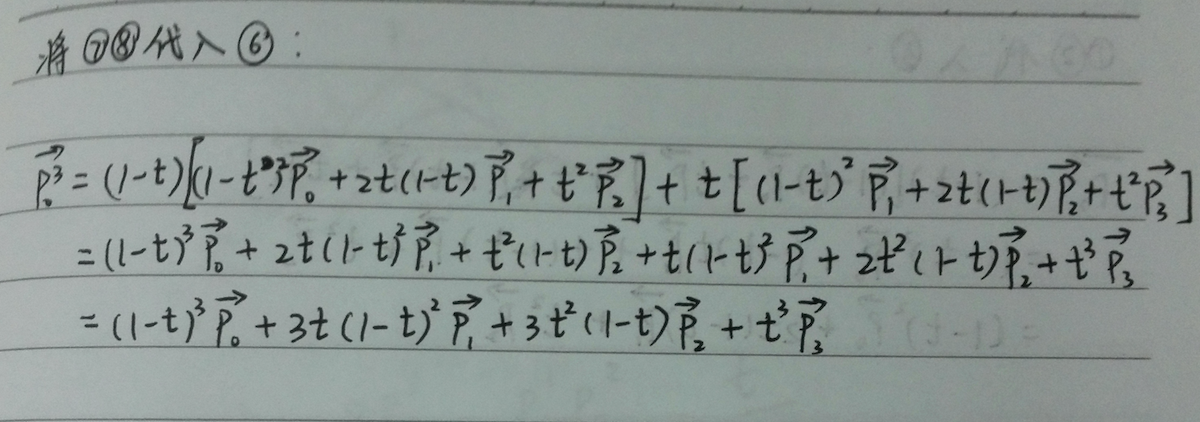 将⑦⑧代入⑥:
$\vec{P_0^3} = (1-t)[(1-t)^2\vec{P_0} + 2t(1-t)\vec{P_1} + t^2\vec{P_2}] + t[(1-t)^2\vec{P_1} + 2t(1-t)\vec{P_2} + t^2\vec{P_3}]$
$= (1-t)^3\vec{P_0} + 2t(1-t)^2\vec{P_1} + t^2(1-t)\vec{P_2} + t(1-t)^2\vec{P_1} + 2t^2(1-t)\vec{P_2} + t^3\vec{P_3}$
$= (1-t)^3\vec{P_0} + 3t(1-t)^2\vec{P_1} + 3t^2(1-t)\vec{P_2} + t^3\vec{P_3}$